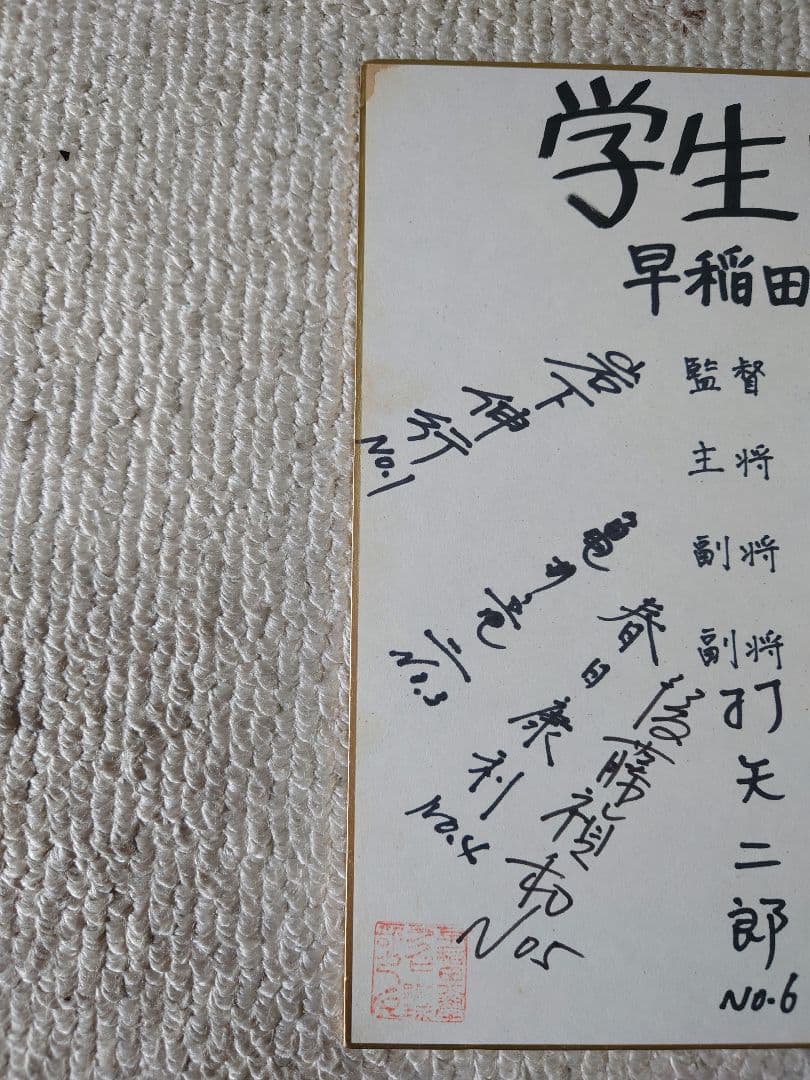 学生
早稲田
監督
主将
副将
副将
打矢二郎
No.6
後藤禎和
No5
春日康利
No.4
No.3
岩下伸行
No.1